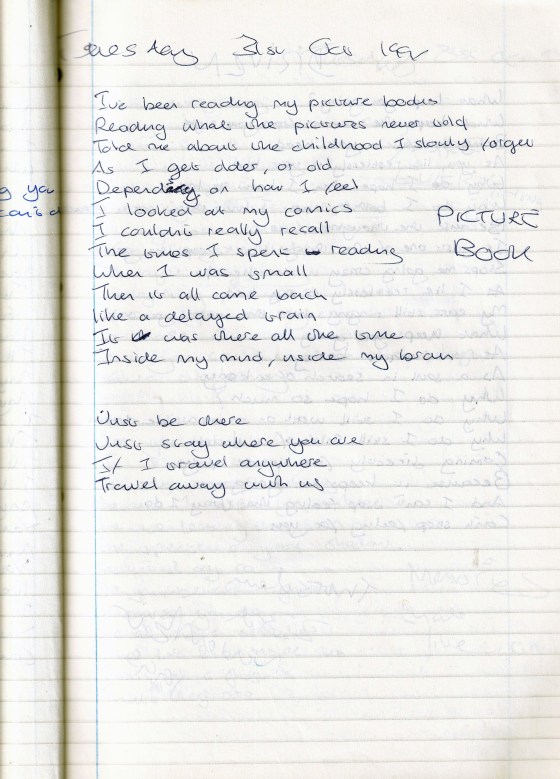 Tuesday 31st Oct
I've been reading my picture books
Reading what the pictures never told
Told me about the childhood I slowly forget
As I get older, or old
Depending on how I feel
I looked at my comics
I couldn't really recall
The times I spent reading
When I was small
Then it all came back
like a delayed train
It was there all the time
Inside my mind, inside my brain
PICTURE
BOOK
Just be there
Just stay where you are
If I travel anywhere
Travel away with us